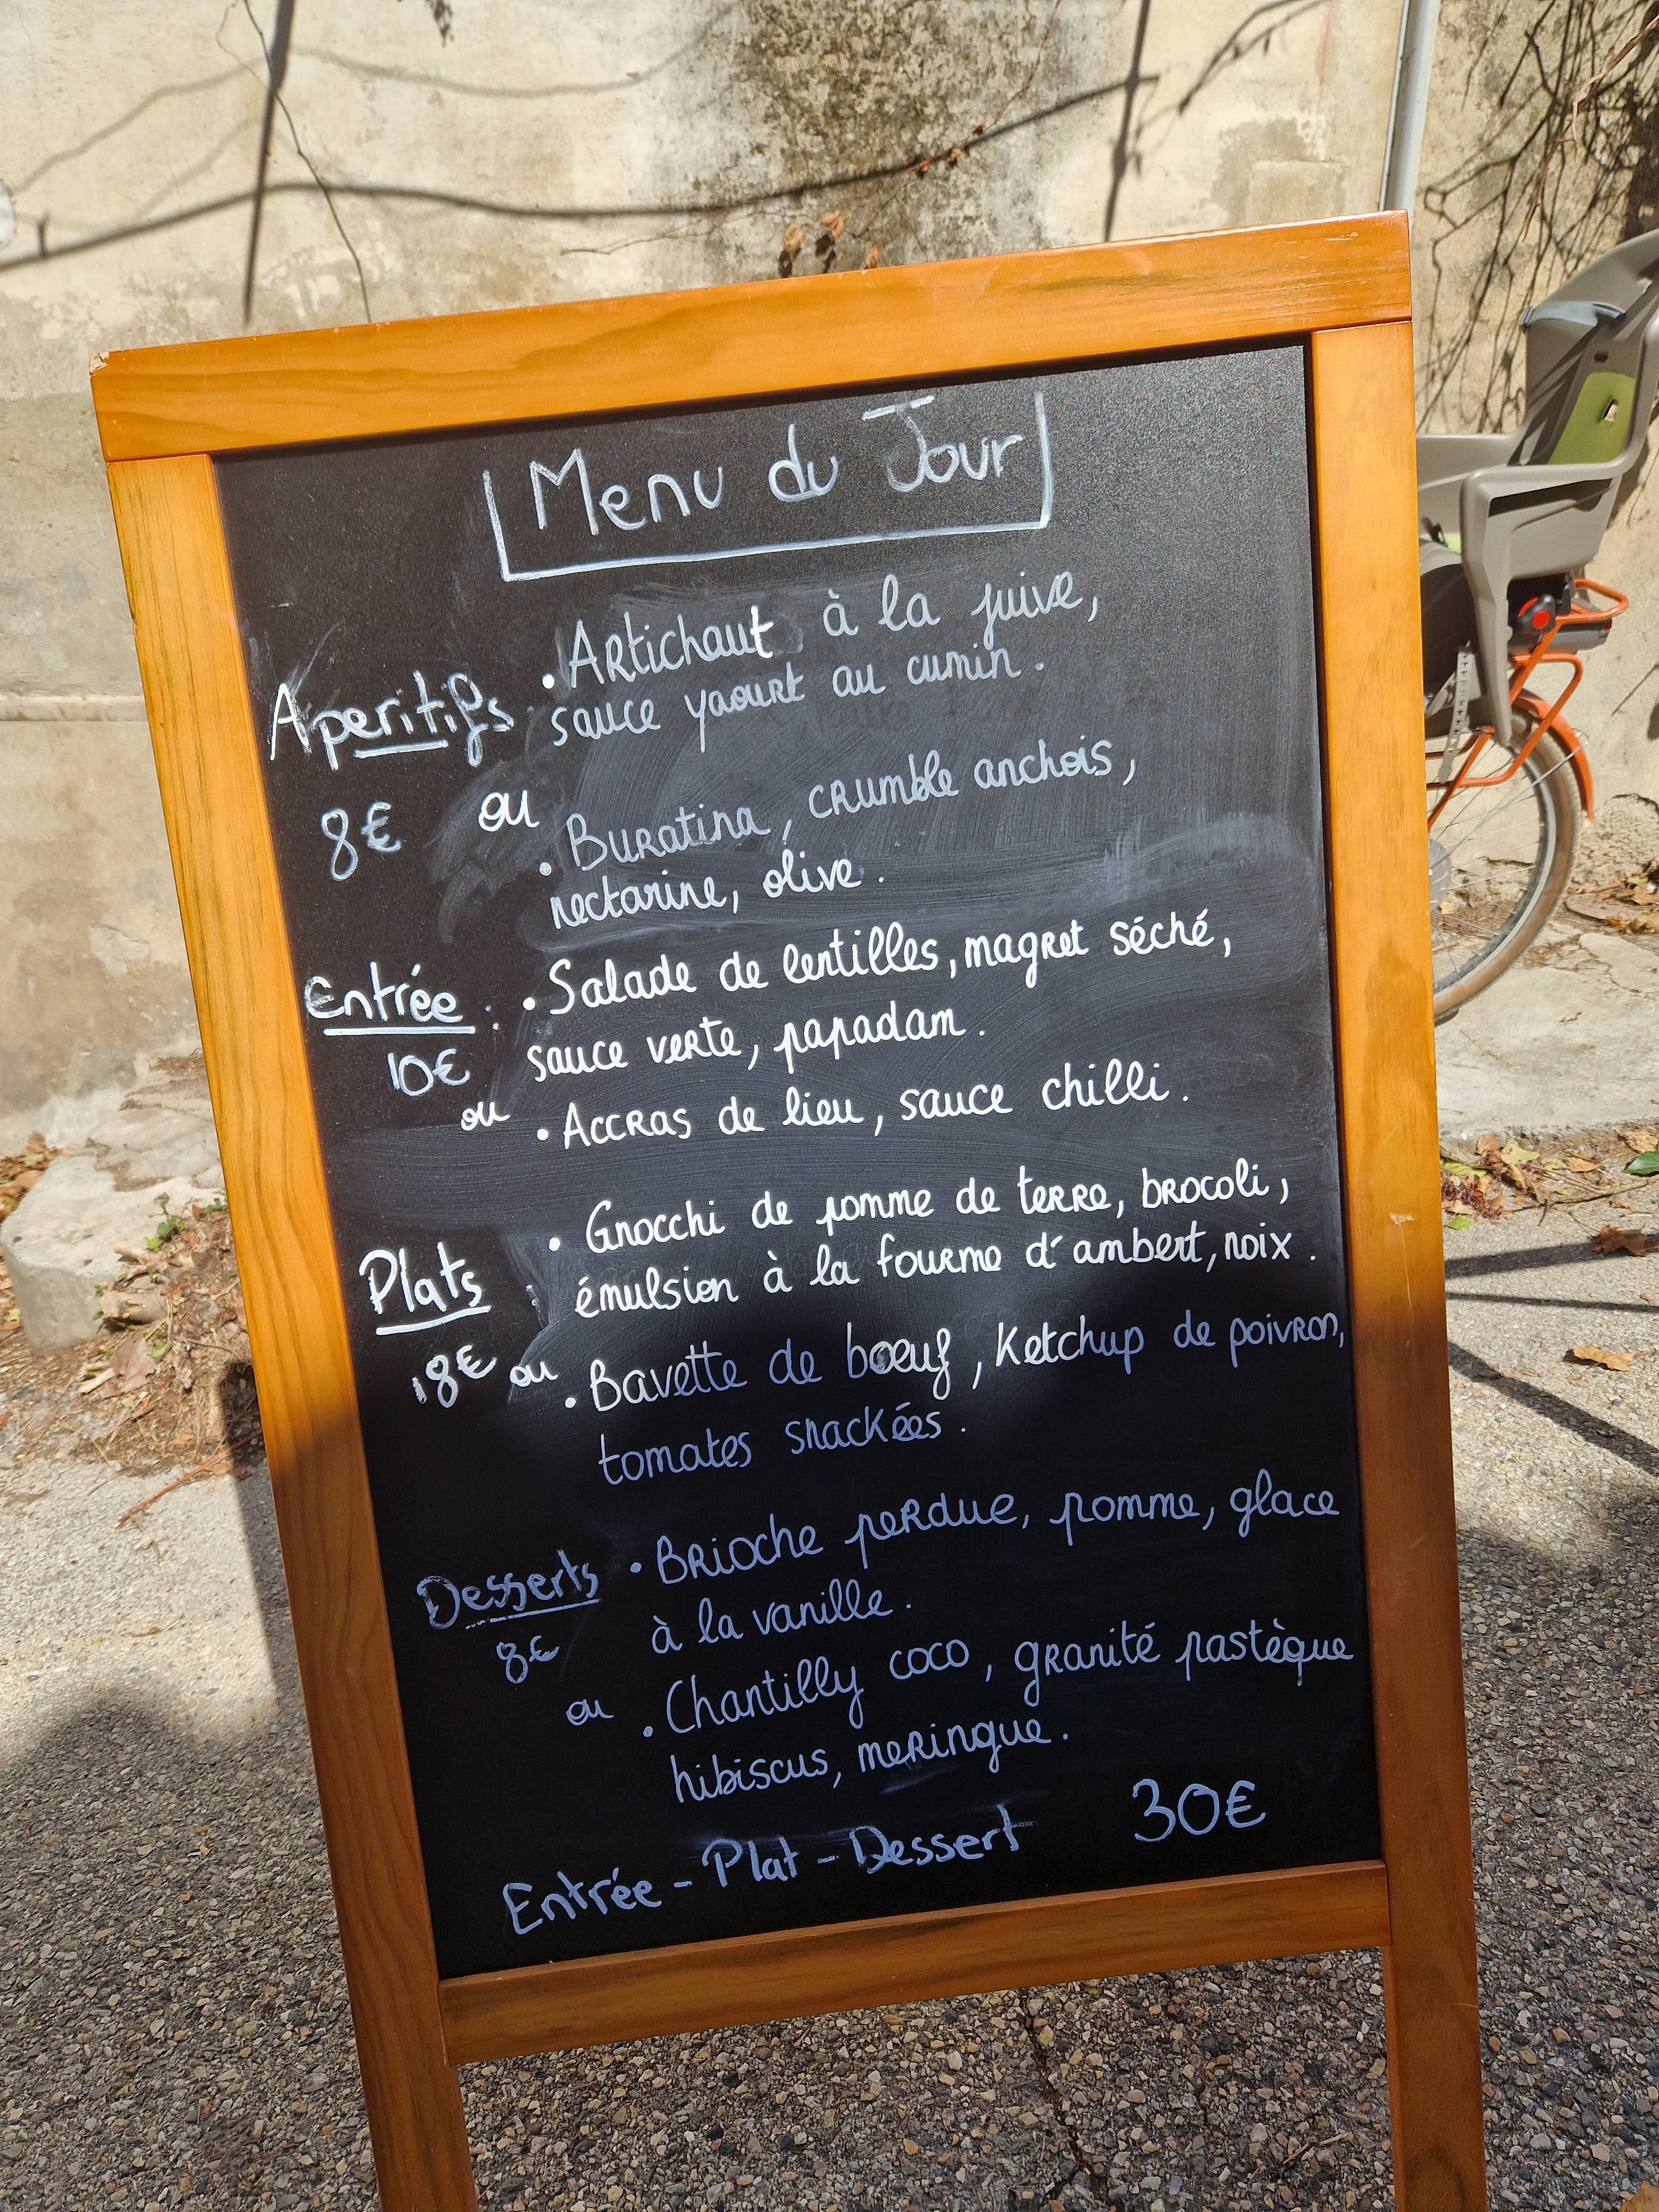 Menu du Jour
• Artichaut à la juive,
Aperitifs sauce yaourt au cumin.
8€ ou • Buratina, crumble anchois,
nectarine, olive.
Entrée : • Salade de lentilles, magret séché,
10€ sauce verte, papadam.
ou • Accras de lieu, sauce chilli.
• Gnocchi de pomme de terre, brocoli,
Plats : émulsion à la fourme d'ambert, noix.
18€ ou • Bavette de bœuf, Ketchup de poivron,
tomates snackées.
Desserts • Brioche perdue, pomme, glace
8€ à la vanille.
ou • Chantilly coco, granité pastèque
hibiscus, meringue.
Entrée - Plat - Dessert 30€